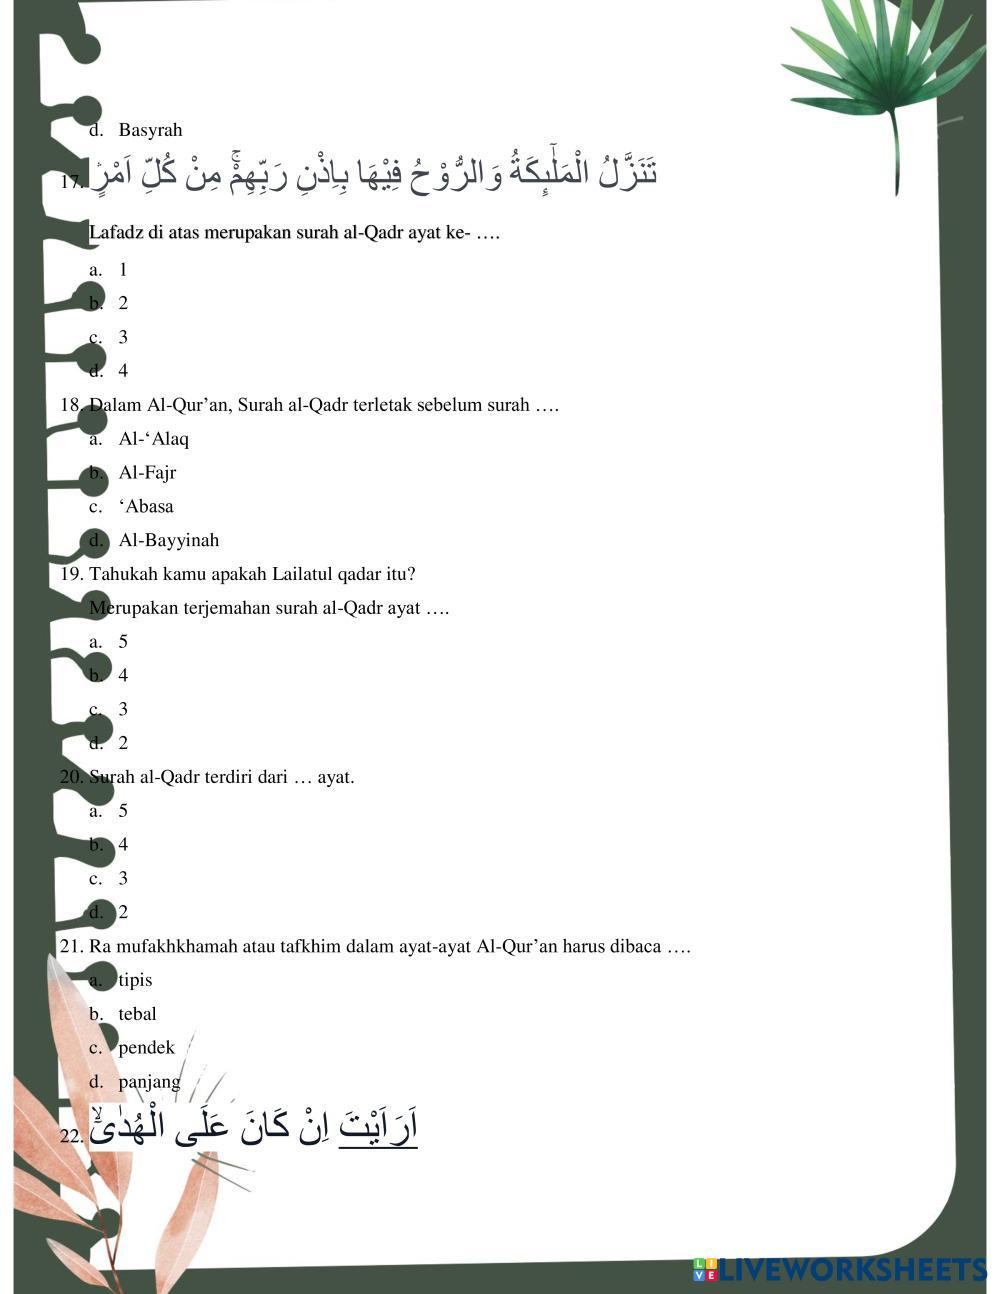 d. Basyrah
17. تَنَزَّلُ الْمَلٰۤىِٕكَةُ وَالرُّوْحُ فِيْهَا بِاِذْنِ رَبِّهِمْۚ مِنْ كُلِّ اَمْرٍۛ
Lafadz di atas merupakan surah al-Qadr ayat ke- ….
a. 1
b. 2
c. 3
d. 4
18. Dalam Al-Qur’an, Surah al-Qadr terletak sebelum surah ….
a. Al-‘Alaq
b. Al-Fajr
c. ‘Abasa
d. Al-Bayyinah
19. Tahukah kamu apakah Lailatul qadar itu?
Merupakan terjemahan surah al-Qadr ayat ….
a. 5
b. 4
c. 3
d. 2
20. Surah al-Qadr terdiri dari … ayat.
a. 5
b. 4
c. 3
d. 2
21. Ra mufakhkhamah atau tafkhim dalam ayat-ayat Al-Qur’an harus dibaca ….
a. tipis
b. tebal
c. pendek
d. panjang
22. اَرَاَيْتَ اِنْ كَانَ عَلَى الْهُدٰىٓۙ
LIVE LIVEWORKSHEETS